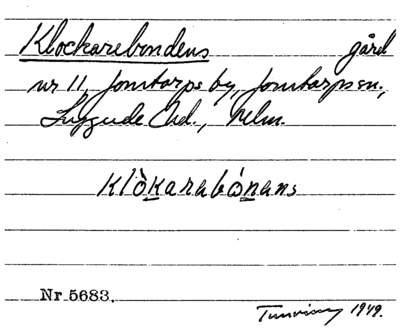 Klockarebondens gård
nr 11, Jonstorps by, Jonstorps sn.,
Luggude hd., Mlm.
Klòkarabónans
Nr 5683.
1949.